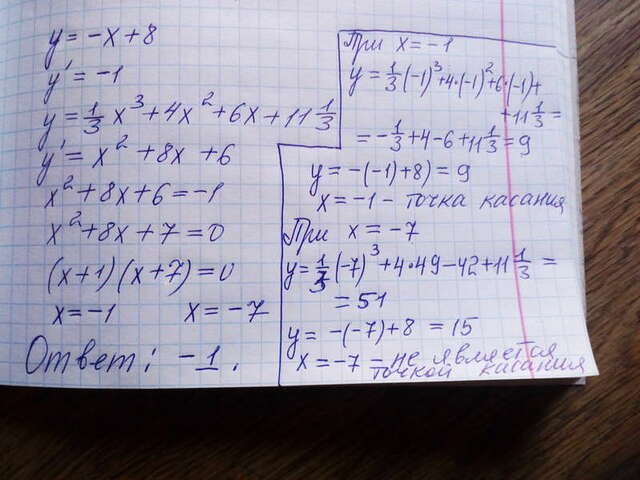 y = -x + 8
y' = -1
y = 1/3 x³ + 4x² + 6x + 11 1/3
y' = x² + 8x + 6
x² + 8x + 6 = -1
x² + 8x + 7 = 0
(x+1)(x+7) = 0
x = -1 x = -7
Ответ: -1.
При x = -1
y = 1/3 (-1)³ + 4·(-1)² + 6·(-1) +
+ 11 1/3 =
= -1/3 + 4 - 6 + 11 1/3 = 9
y = -(-1)+8) = 9
x = -1 - точка касания
При x = -7
y = 1/3 (-7)³ + 4·49 - 42 + 11 1/3 =
= 51
y = -(-7)+8 = 15
x = -7 - не является
точкой касания